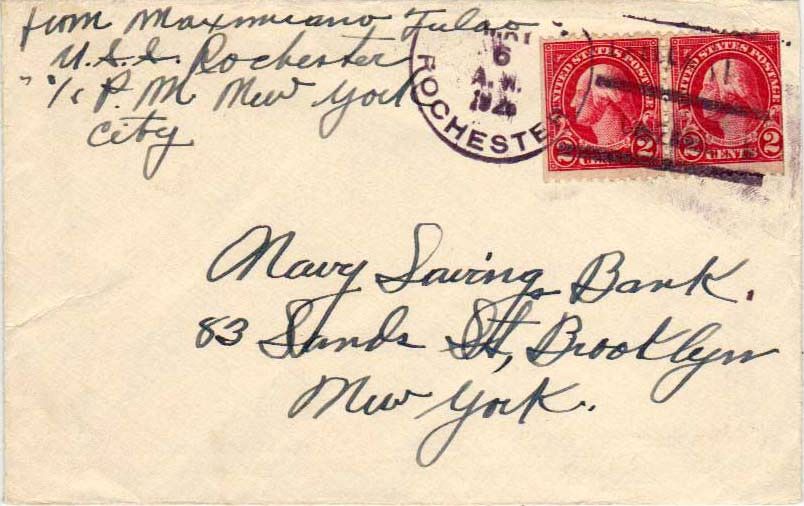 from Maximiano Fulao
U.S.S. Rochester
℅ P.M. New York
City
6
A.M.
ROCHESTER
UNITED STATES POSTAGE
2 CENTS 2
UNITED STATES POSTAGE
2 CENTS 2
Navy Savings Bank.
83 Sands St, Brooklyn
New York.